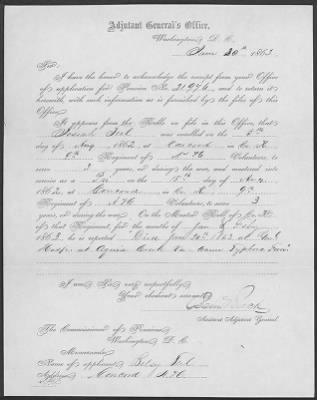 Adjutant General's Office,
Washington, D. C.
June 20th 1863
Sir:
I have the honor to acknowledge the receipt from your Office
of application for Pension No. 21976, and to return it
herewith, with such information as is furnished by the files of this
Office.
It appears from the Rolls on file in this Office, that
was enrolled on the 5th
day of Aug, 1862, at Concord in Co. K
9th Regiment of N H Volunteers, to
serve 3 years, or during the war, and mustered into
service as a at
1862, at Concord in Co. K 9th
Regiment of N H Volunteers, to serve 3
years, or during the war. On the Muster Roll of Co. K
of that Regiment, for the months of Jan & Feby
1863, he is reported Died Jany 20th 1863 at
Hosp. at Aquia Creek Va. Typhoid
I am, Sir, very respectfully,
Your obedient servant,
Assistant Adjutant General.
The Commissioner of Pensions
Washington, D. C.
Memoranda:
Name of applicant Betsy
Address Concord N.H.